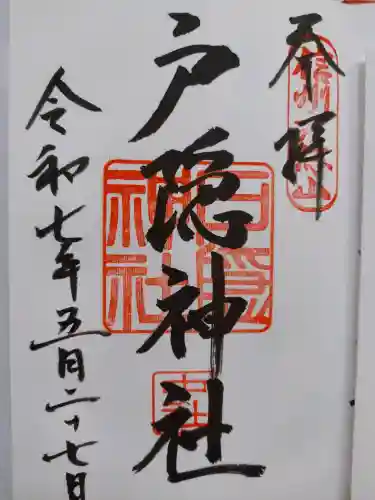 奉拝
戸隠神社
令和七年五月二十七日
戸隠神社
中社